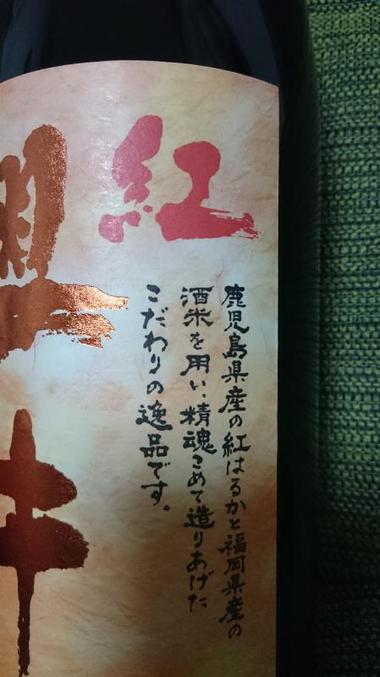 紅
鹿児島県産の紅はるかと福岡県産の
酒米を用い、精魂こめて造りあげた
こだわりの逸品です。